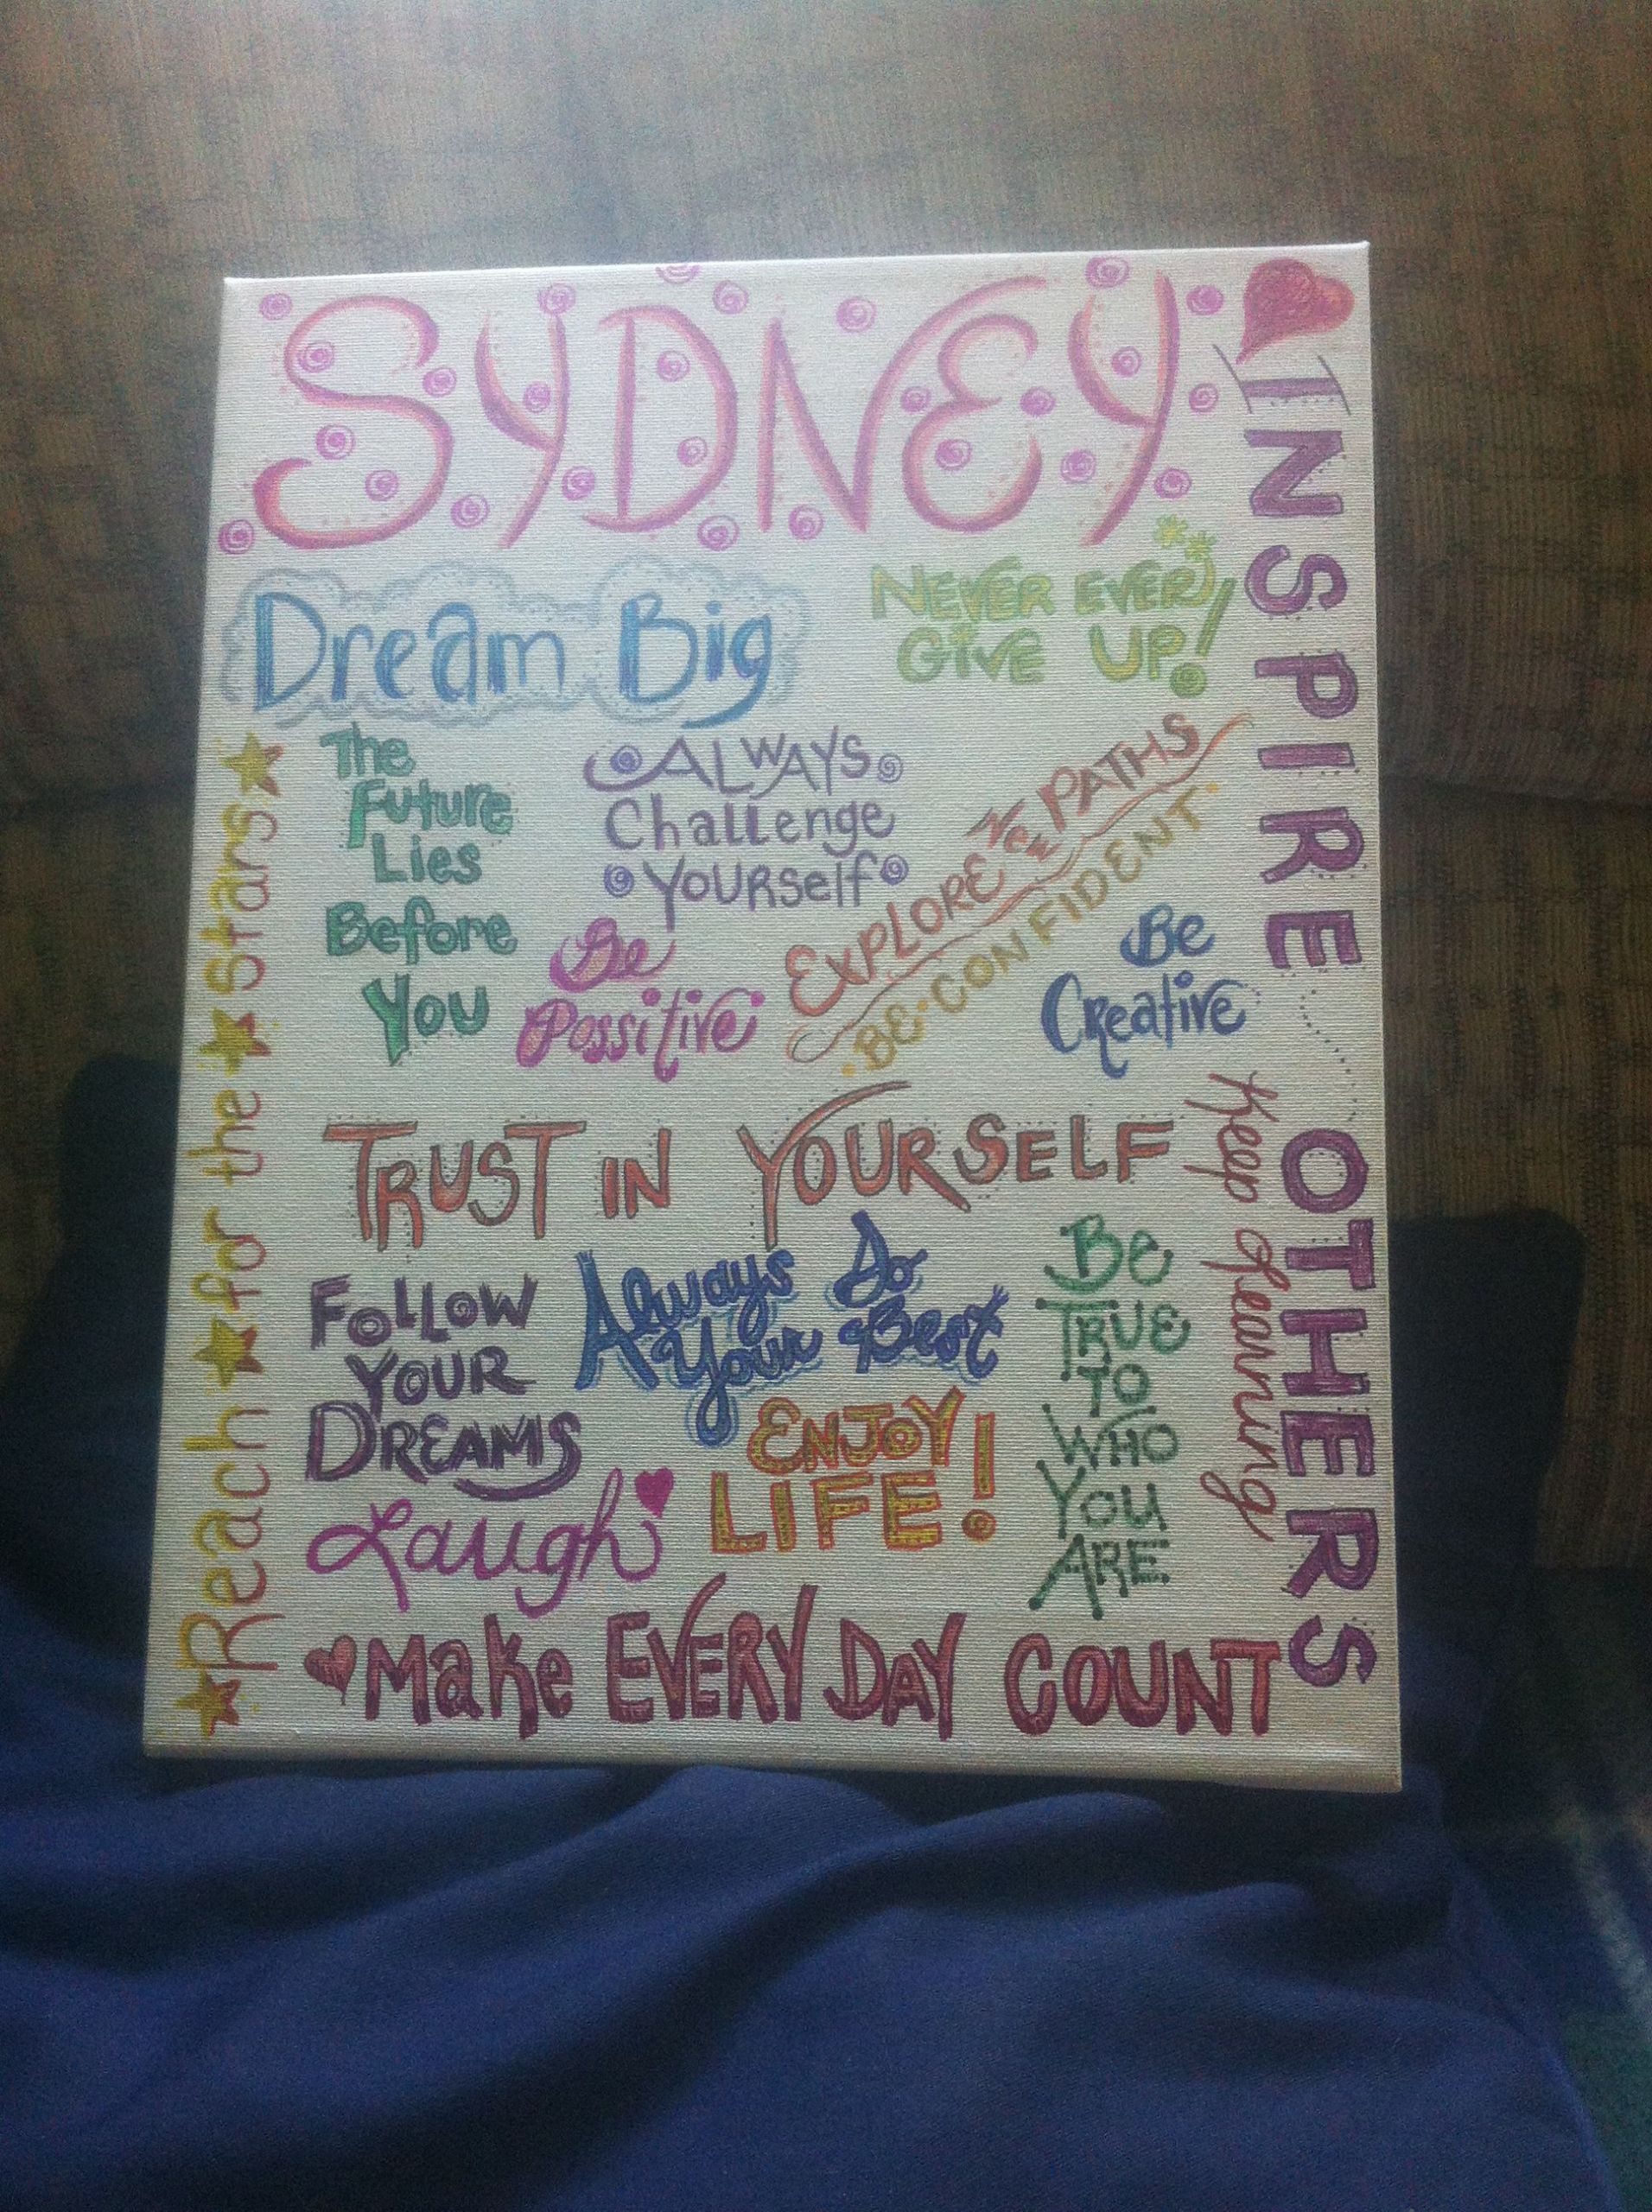 SYDNEY
Dream Big
NEVER EVER
GIVE UP!
The
Future
Lies
Before
You
ALWAYS
Challenge
YOURSelf
EXPLORE NEW PATHS
BE CONFIDENT
Be
Possitive
Be
Creative
TRUST IN YOURSELF
FOLLOW
YOUR
DREAMS
Always Do
Your Best
BE
TRUE
TO
WHO
YOU
ARE
ENJOY
LIFE!
Laugh
Make EVERY DAY COUNT
Reach for the Stars
INSPIRE OTHERS
Keep Learning